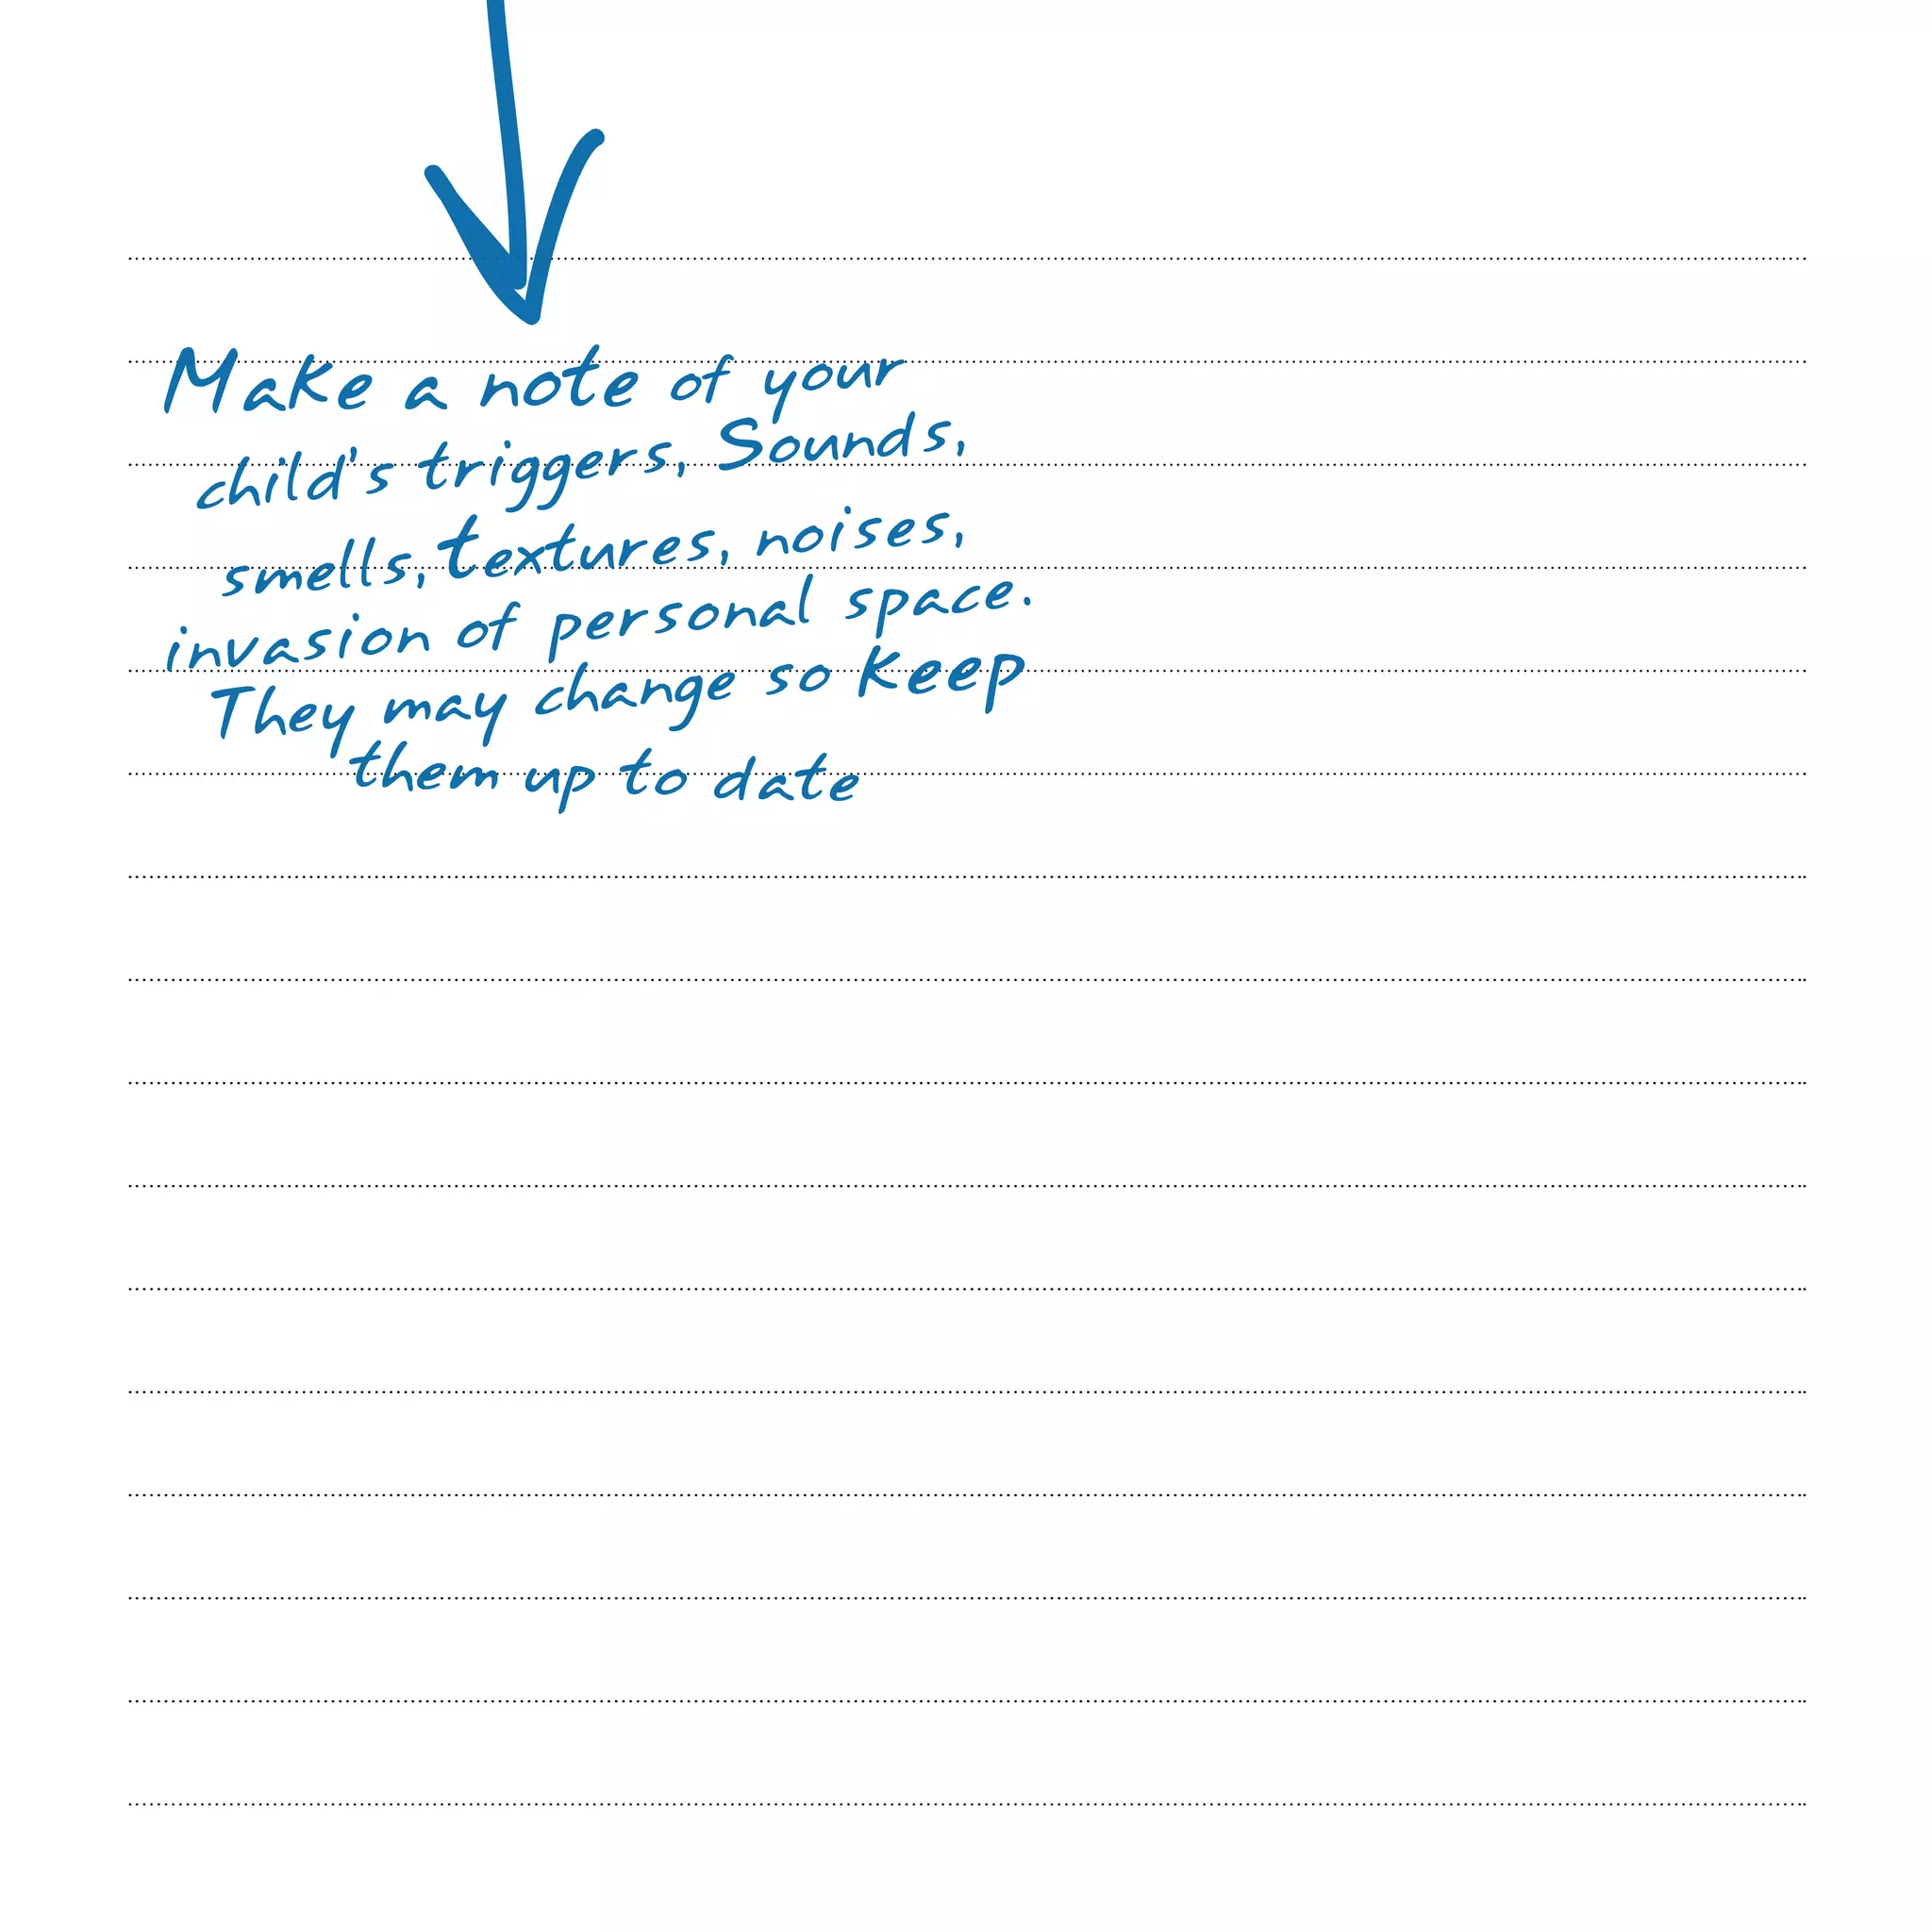 Make a note of your
child's triggers, Sounds,
smells, textures, noises,
invasion of personal space.
They may change so keep
them up to date